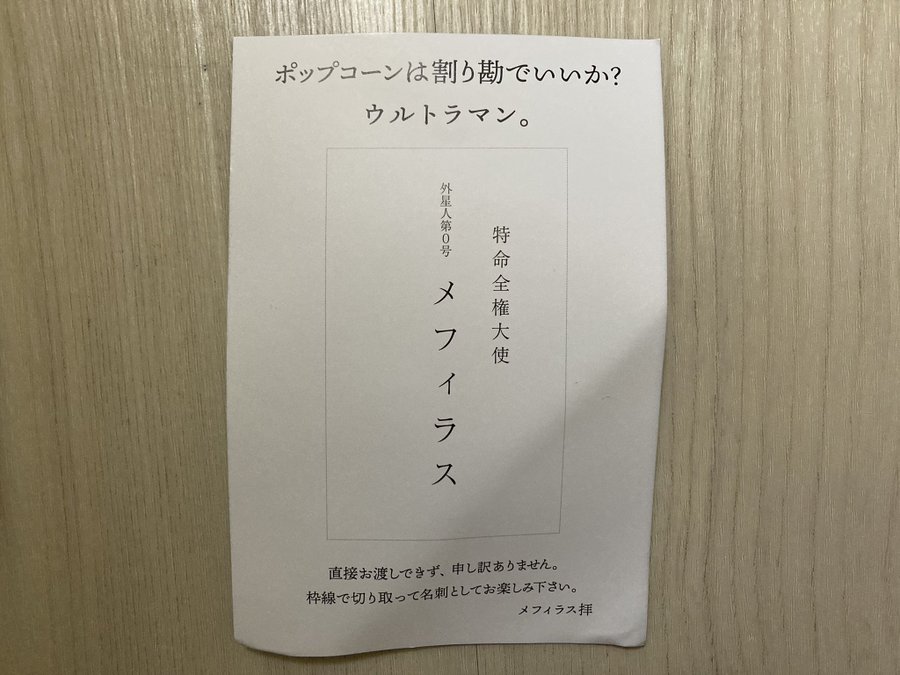 ポップコーンは割り勘でいいか?
ウルトラマン。
特命全権大使
外星人第0号 メフィラス
直接お渡しできず、申し訳ありません。
枠線で切り取って名刺としてお楽しみ下さい。
メフィラス拝